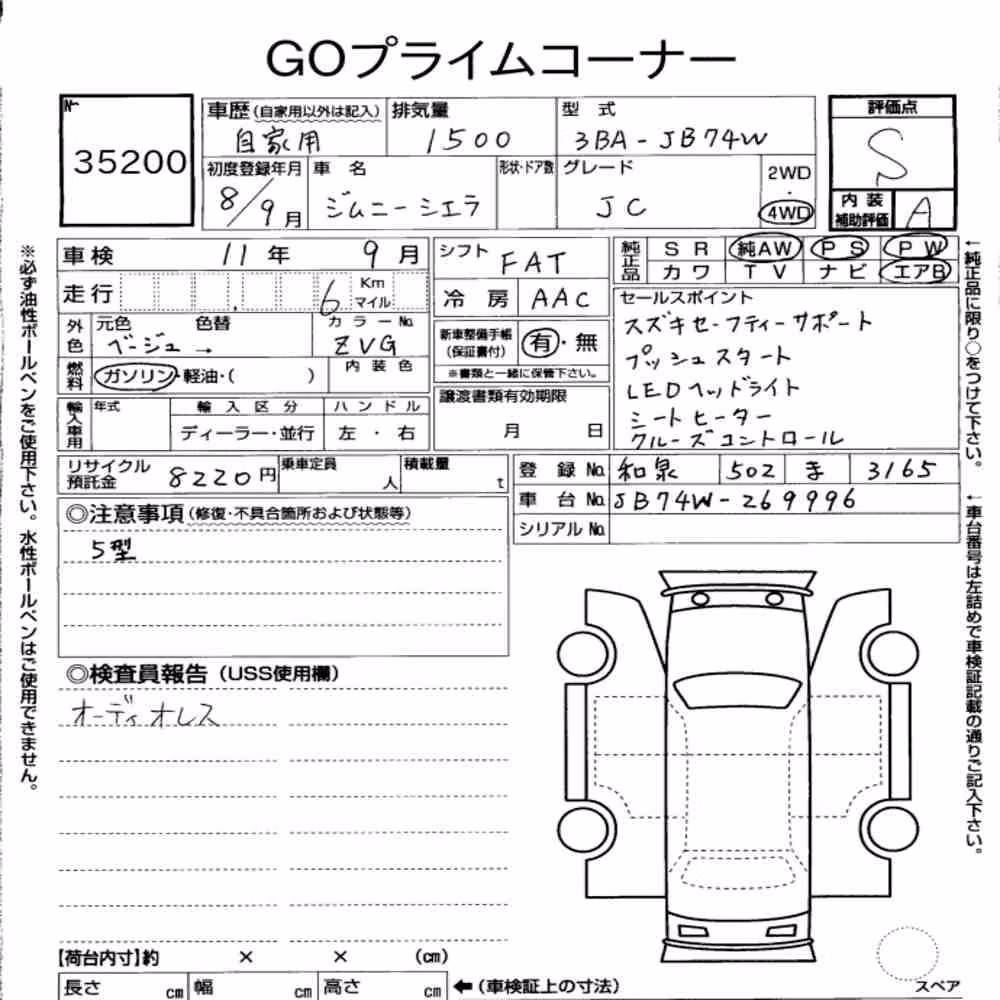 GOプライムコーナー
№
35200
車歴(自家用以外は記入) 排気量 型式 評価点
自家用 1500 3BA-JB74W S
初度登録年月 車名 形状・ドア数 グレード 2WD
8/9月 ジムニーシエラ JC ・ 4WD
内装補助評価 A
車検 11年 9月
走行 6 Km マイル
外色 元色 色替 カラーNo.
ベージュ → ZVG
燃料 ガソリン・軽油・( ) 内装色
輸入車用 年式 輸入区分 ハンドル
ディーラー・並行 左・右
シフト FAT
冷房 AAC
新車整備手帳(保証書付) 有・無
※書類と一緒に保管下さい。
譲渡書類有効期限
月 日
純正品 SR 純AW PS PW
カワ TV ナビ エアB
セールスポイント
スズキセーフティーサポート
プッシュスタート
LEDヘッドライト
シートヒーター
クルーズコントロール
リサイクル預託金 8220円 乗車定員 人 積載量 t
登録No. 和泉 502 ま 3165
車台No. JB74W-269996
シリアルNo.
◎注意事項(修復・不具合箇所および状態等)
5型
◎検査員報告(USS使用欄)
オーディオレス
【荷台内寸】約 × × (cm)
長さ cm 幅 cm 高さ cm ←(車検証上の寸法)
スペア
※必ず油性ボールペンをご使用下さい。水性ボールペンはご使用できません。
←純正品に限り○をつけて下さい。
←車台番号は左詰めで車検証記載の通りご記入下さい。